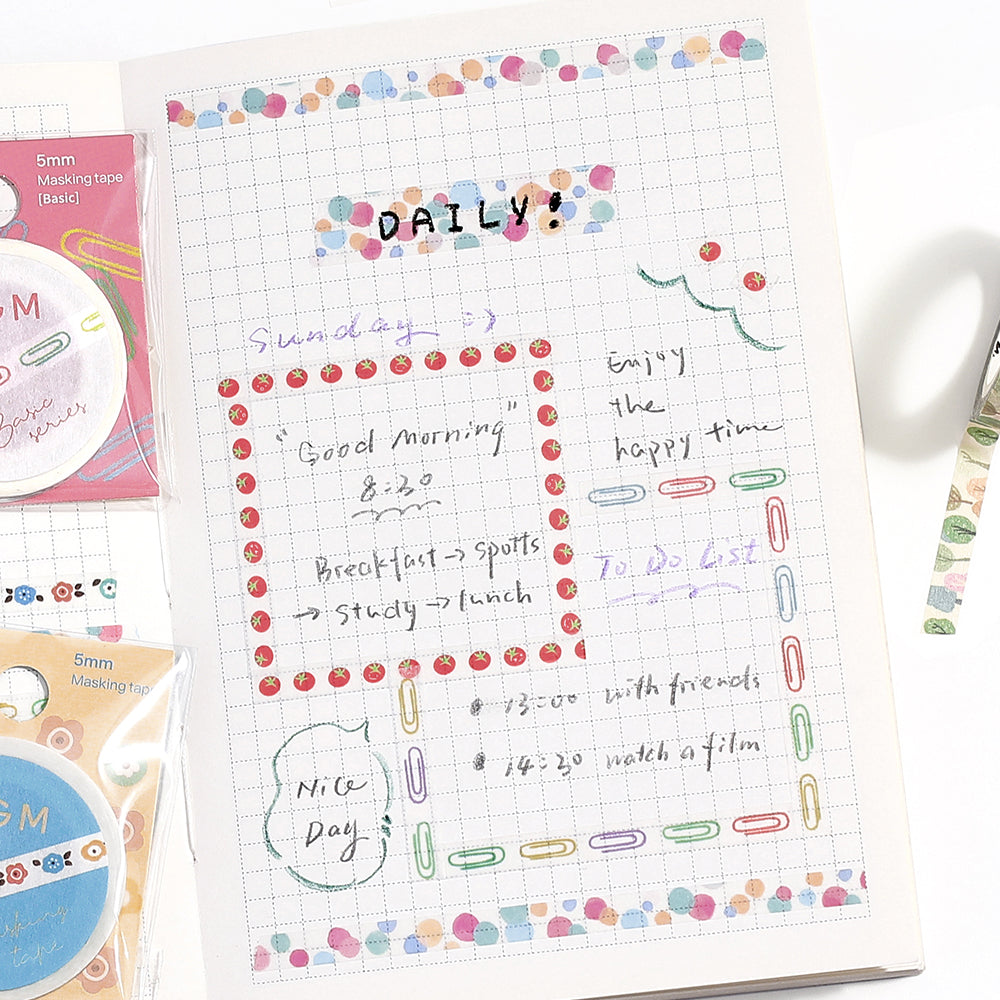 5mm
Masking tape
[Basic]
GM
Basic
series
5mm
Masking tape
GM
tape
DAILY!
Sunday :)
Enjoy
the
happy time
"Good morning"
8:30
Breakfast → spotts
→ study → lunch
To Do List
• 13:00 with friends
• 14:30 watch a film
Nice
Day